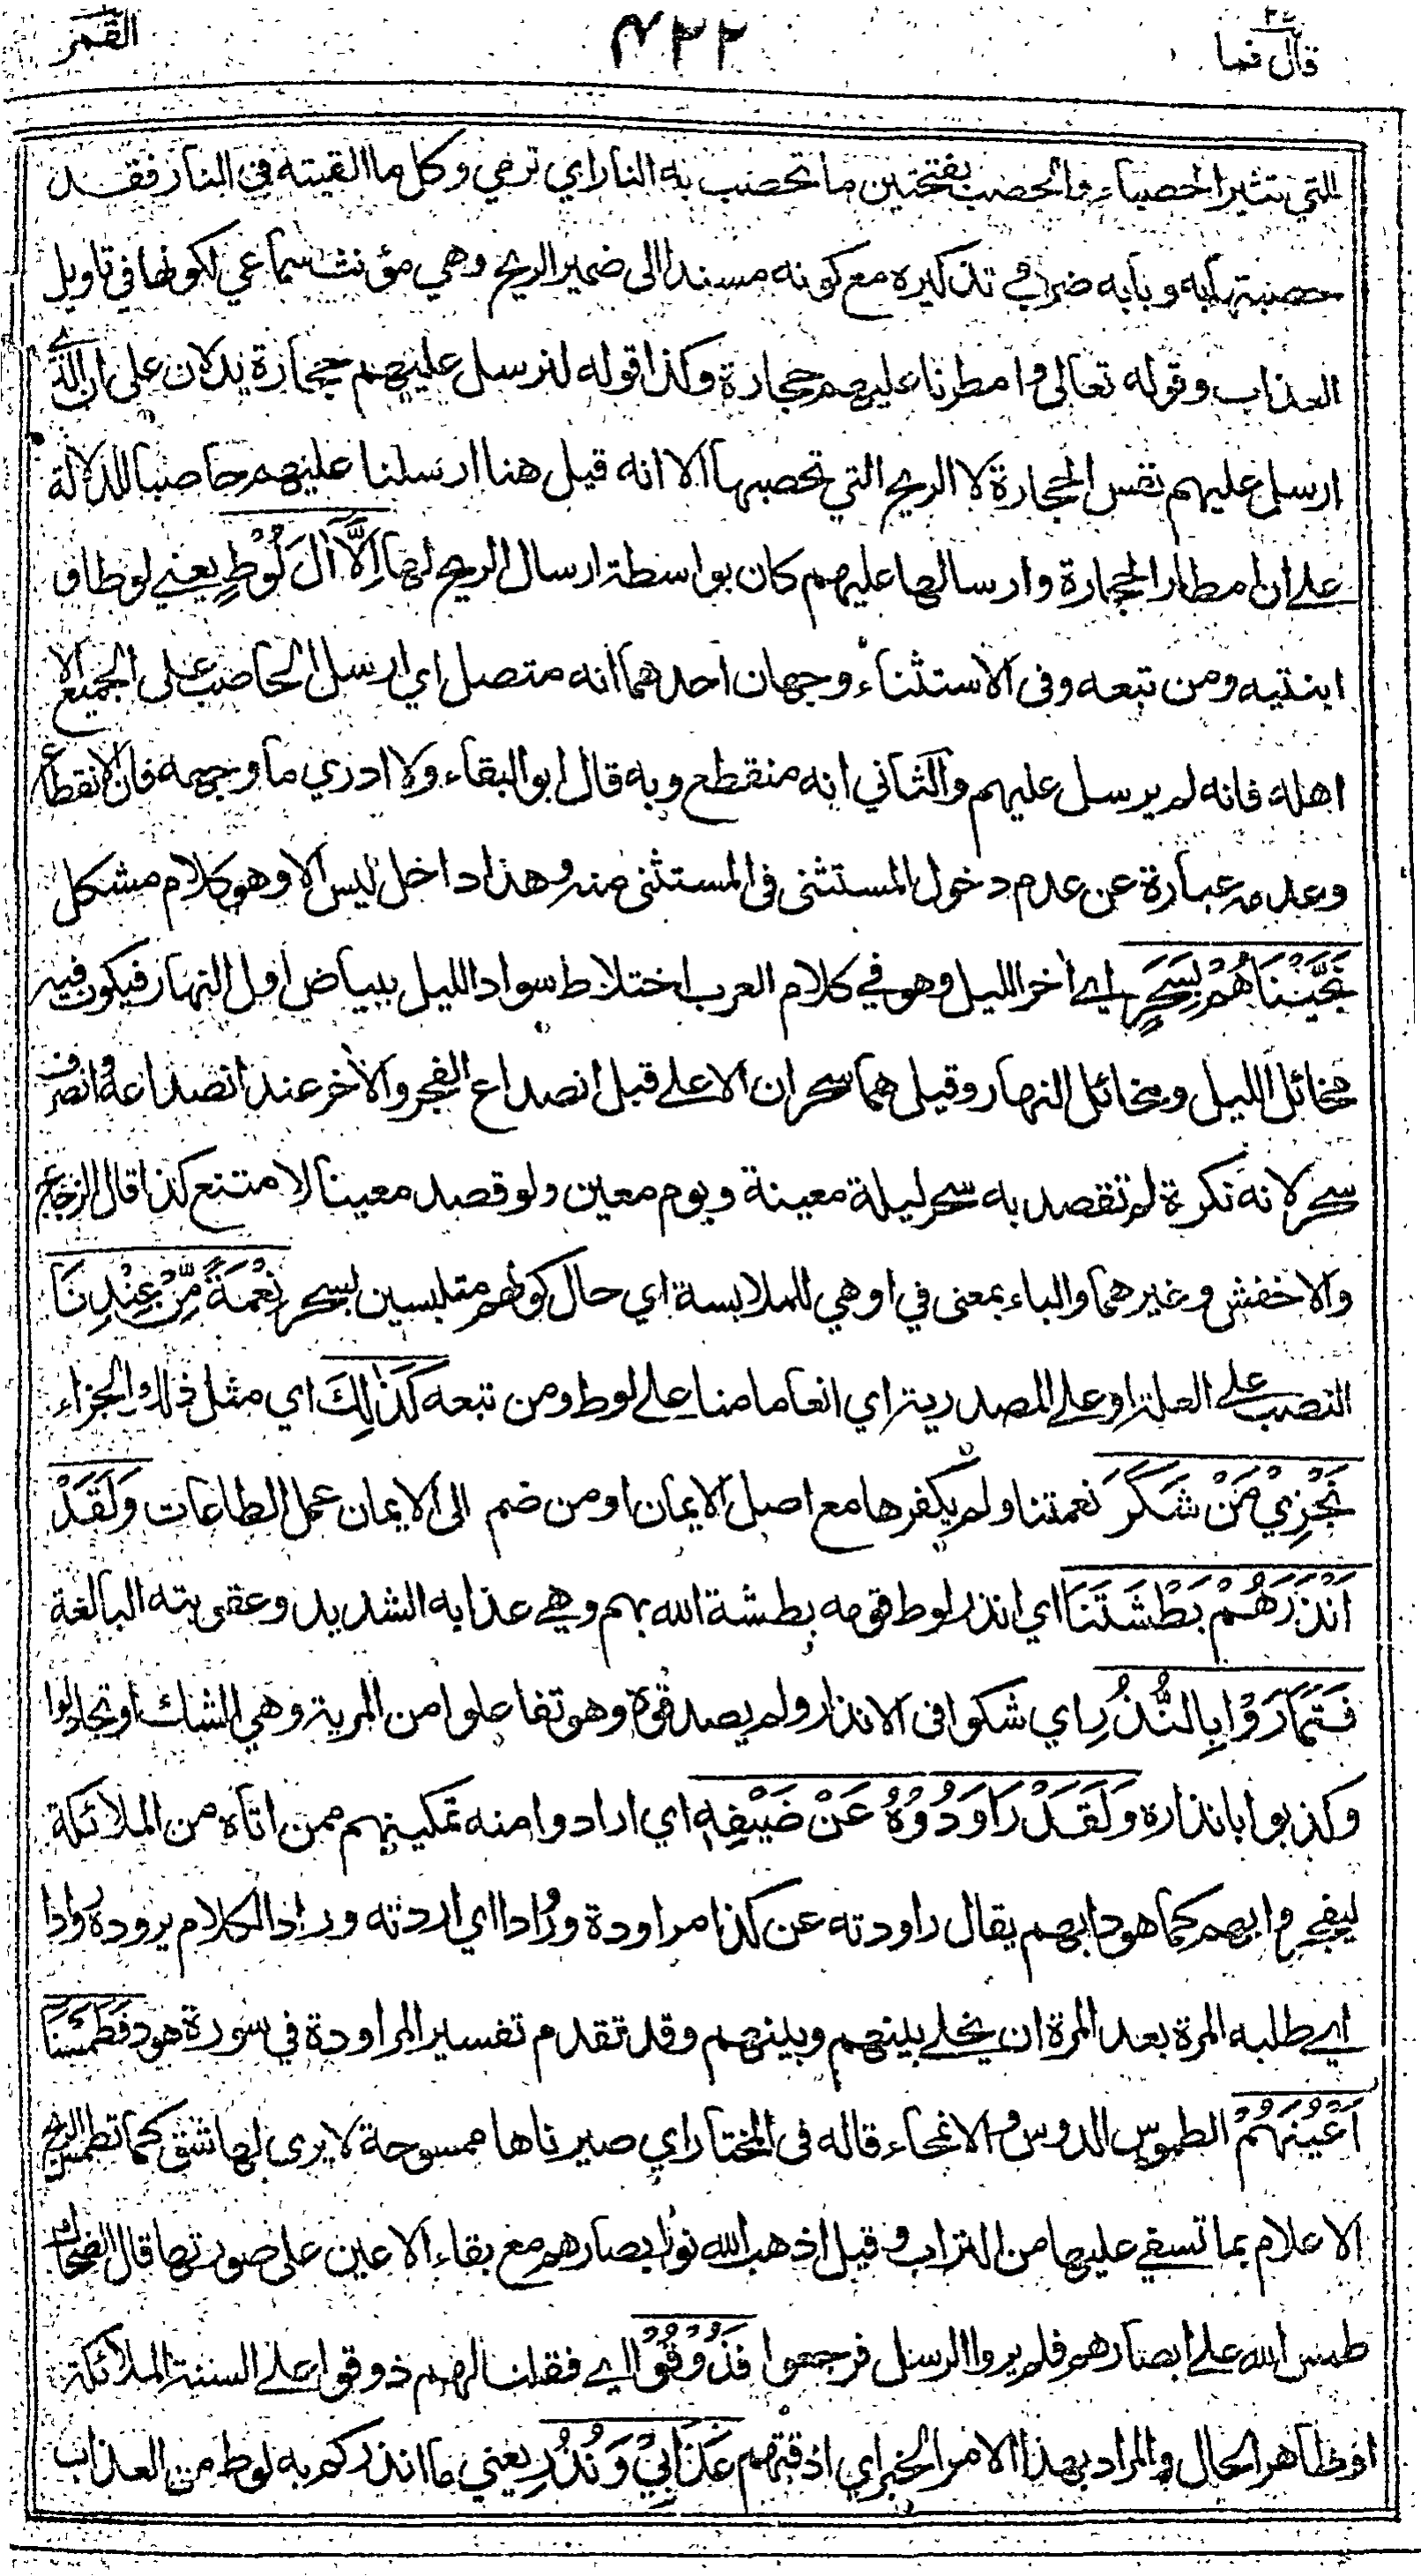 قال فما ٢٧
٤٣٢
القمر
التي تثير الحصباء والحصب بفتحتين ما تحصب به النار اي ترمي وكل ما القيته في النار فقد
حصبتها به وبابه ضرب وتذكيره مع كونه مسندا الى ضمير الريح وهي مؤنث سماعي لكونها في تاويل
العذاب وقوله تعالى وامطرنا عليهم حجارة وكذا قوله لنرسل عليهم حجارة يدلان على ان الذي
ارسل عليهم نفس الحجارة لا الريح التي تحصبها الا انه قيل هنا ارسلنا عليهم حاصبا للدلالة
على ان امطار الحجارة وارسالها عليهم كان بواسطة ارسال الريح لها اِلَّا آلَ لُوْطٍ يعني لوطا و
ابنتيه ومن تبعه وفى الاستثناء وجهان احدهما انه متصل اي ارسل الحاصب على الجميع الا
اهله فانه لم يرسل عليهم والثاني انه منقطع وبه قال ابو البقاء ولا ادري ما وجهه فان الانقطاع
وعدمه عبارة عن عدم دخول المستثنى فى المستثنى منه وهذا داخل ليس الا وهو كلام مشكل
نَجَّيْنَاهُمْ بِسَحَرٍ اي اٰخر الليل وهو في كلام العرب اختلاط سواد الليل ببياض اول النهار فيكون فيه
مخائل الليل ومخائل النهار وقيل هما سحران الاعلى قبل انصداع الفجر والاٰخر عند انصداعه وانصرف
سحر لانه نكرة لم تقصد به سحر ليلة معينة ويوم معين ولو قصد معينا لامتنع كذا قال الزجاج
والاخفش وغيرهما والباء بمعنى في او هي للملابسة اي حال كونهم متلبسين بسحر نِعْمَةً مِّنْ عِنْدِنَا
النصب على العلة او على المصدرية اي انعاما منا على لوط ومن تبعه كَذٰلِكَ اي مثل ذلك الجزاء
نَجْزِيْ مَنْ شَكَرَ نعمتنا ولم يكفرها مع اصل الايمان او من ضم الى الايمان عمل الطاعات وَلَقَدْ
اَنْذَرَهُمْ بَطْشَتَنَا اي انذر لوط قومه بطشة الله بهم وهي عذابه الشديد وعقوبته البالغة
فَتَمَارَوْا بِالنُّذُرِ اي شكوا فى الانذار ولم يصدقوه وهو تفاعلوا من المرية وهي الشك او تجادلوا
وكذبوا بانذاره وَلَقَدْ رَاوَدُوْهُ عَنْ ضَيْفِهٖ اي ارادوا منه تمكينهم ممن اتاه من الملائكة
ليفجروا بهم كما هو دابهم يقال راودته عن كذا مراودة ورُوادا اي اردته وراد الكلام يروده رودا
اي طلبه المرة بعد المرة ان يخلي بينهم وبينهم وقد تقدم تفسير المراودة في سورة هود فَطَمَسْنَا
اَعْيُنَهُمْ الطموس الدروس والانمحاء قاله فى المختار اي صيرناها ممسوحة لا يرى لها شق كما تطمس الريح
الاعلام بما تسفي عليها من التراب وقيل اذهب الله نور ابصارهم مع بقاء الاعين على صورتها قال الضحاك
طمس الله على ابصارهم فلم يروا الرسل فرجعوا فَذُوْقُوْا اي فقلنا لهم ذوقوا على السنة الملائكة
او ظاهر الحال والمراد بهذا الامر الخبر اي اذقتهم عَذَابِيْ وَنُذُرِ يعني ما انذركم به لوط من العذاب